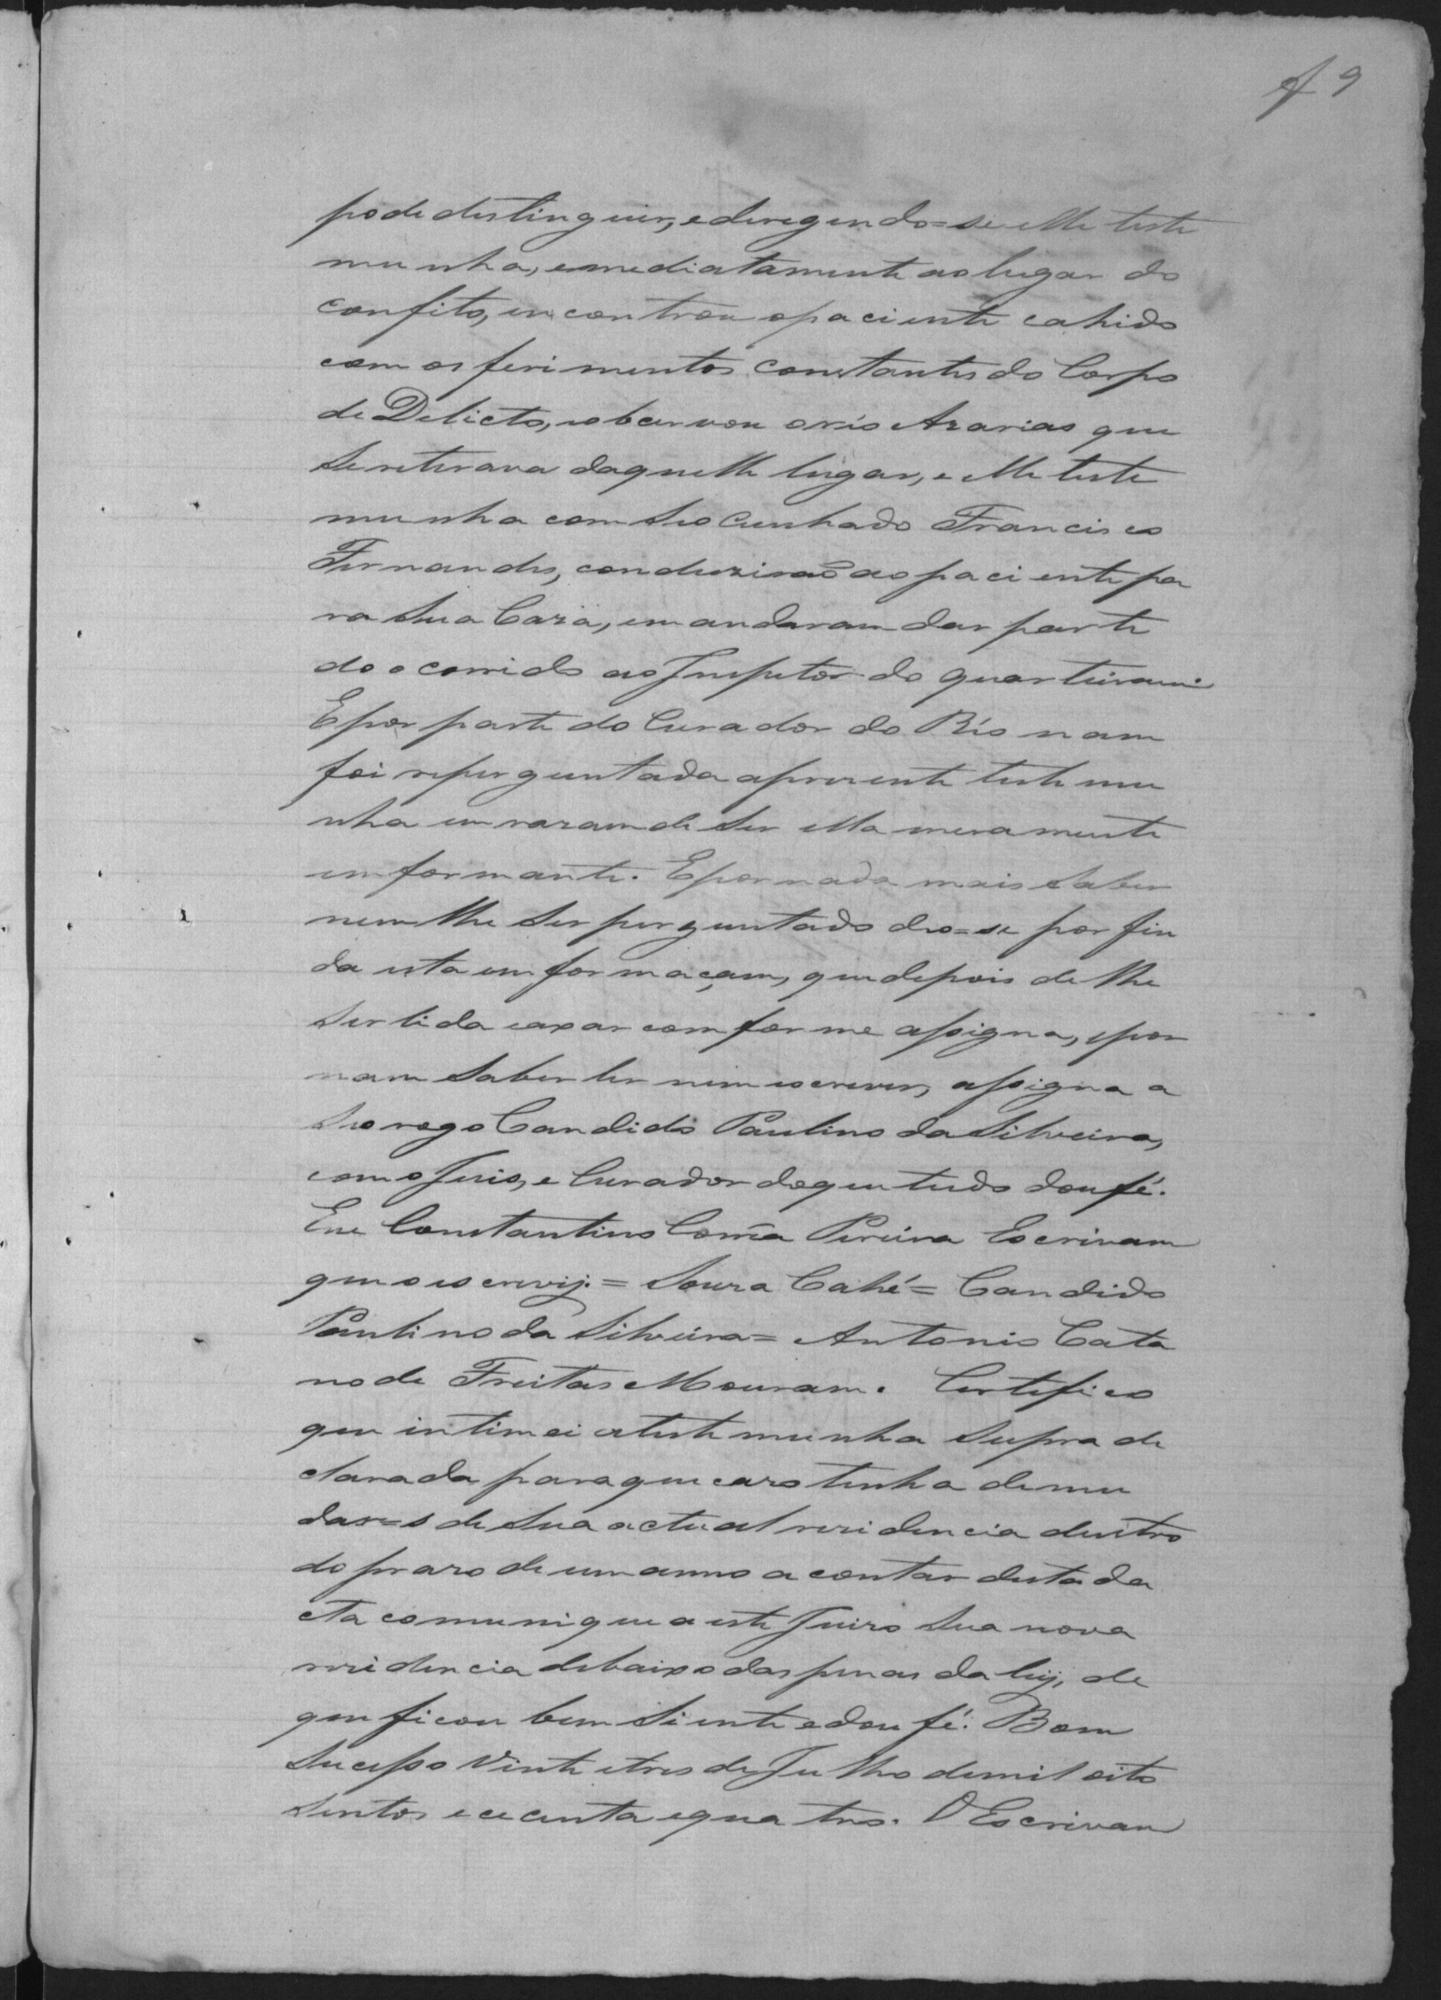 f 9
pode destinguir, e deregendo=se elle teste
munha, emediatamente ao lugar do
confito, encontrou o paciente cahido
com os ferimentos constantes do Corpo
de Delicto, e obcervou o réo Azarias que
Se reterava daquelle lugar, e elle teste
munha com Seo Cunhado Francisco
Fernandes, conduzirão ao paciente pa
ra Sua Caza, e mandaram dar parte
do ocorrido ao Inspetor do quarteiram.
E por parte do Curador do Réo nam
foi reperguntada a prezente teste mu
nha em razam de Ser ella meramente
emformante. E por nada mais Saber
nem lhe Ser perguntado deo=se por fin
da esta emformaçam, que depois de lhe
Ser lida e axar comforme assigna, e por
nam Saber ler nem escrever, assigna a
Seo rogo Candido Paulino da Silveira,
com o Juis, e Curador do que tudo dou fé.
Eu Constantino Corrêa Pereira Escrivam
que o escrevij. = Souza Cahé = Candido
Paulino da Silveira = Antonio Cata
no de Freitas Mouram. Certifico
que intimei a teste munha Supra de
clarada para que cazo tenha de mu
dar=s de Sua actual rezidencia dentro
do prazo de um anno a contar desta da
cta comunique a este Juizo Sua nova
rezidencia debaixo das penas da leij, de
que ficou bem Siente e dou fé. Bom
Sucesso Vinte e tres de Julho de mil oito
Sentos e cecenta e qua tro. O Escrivam